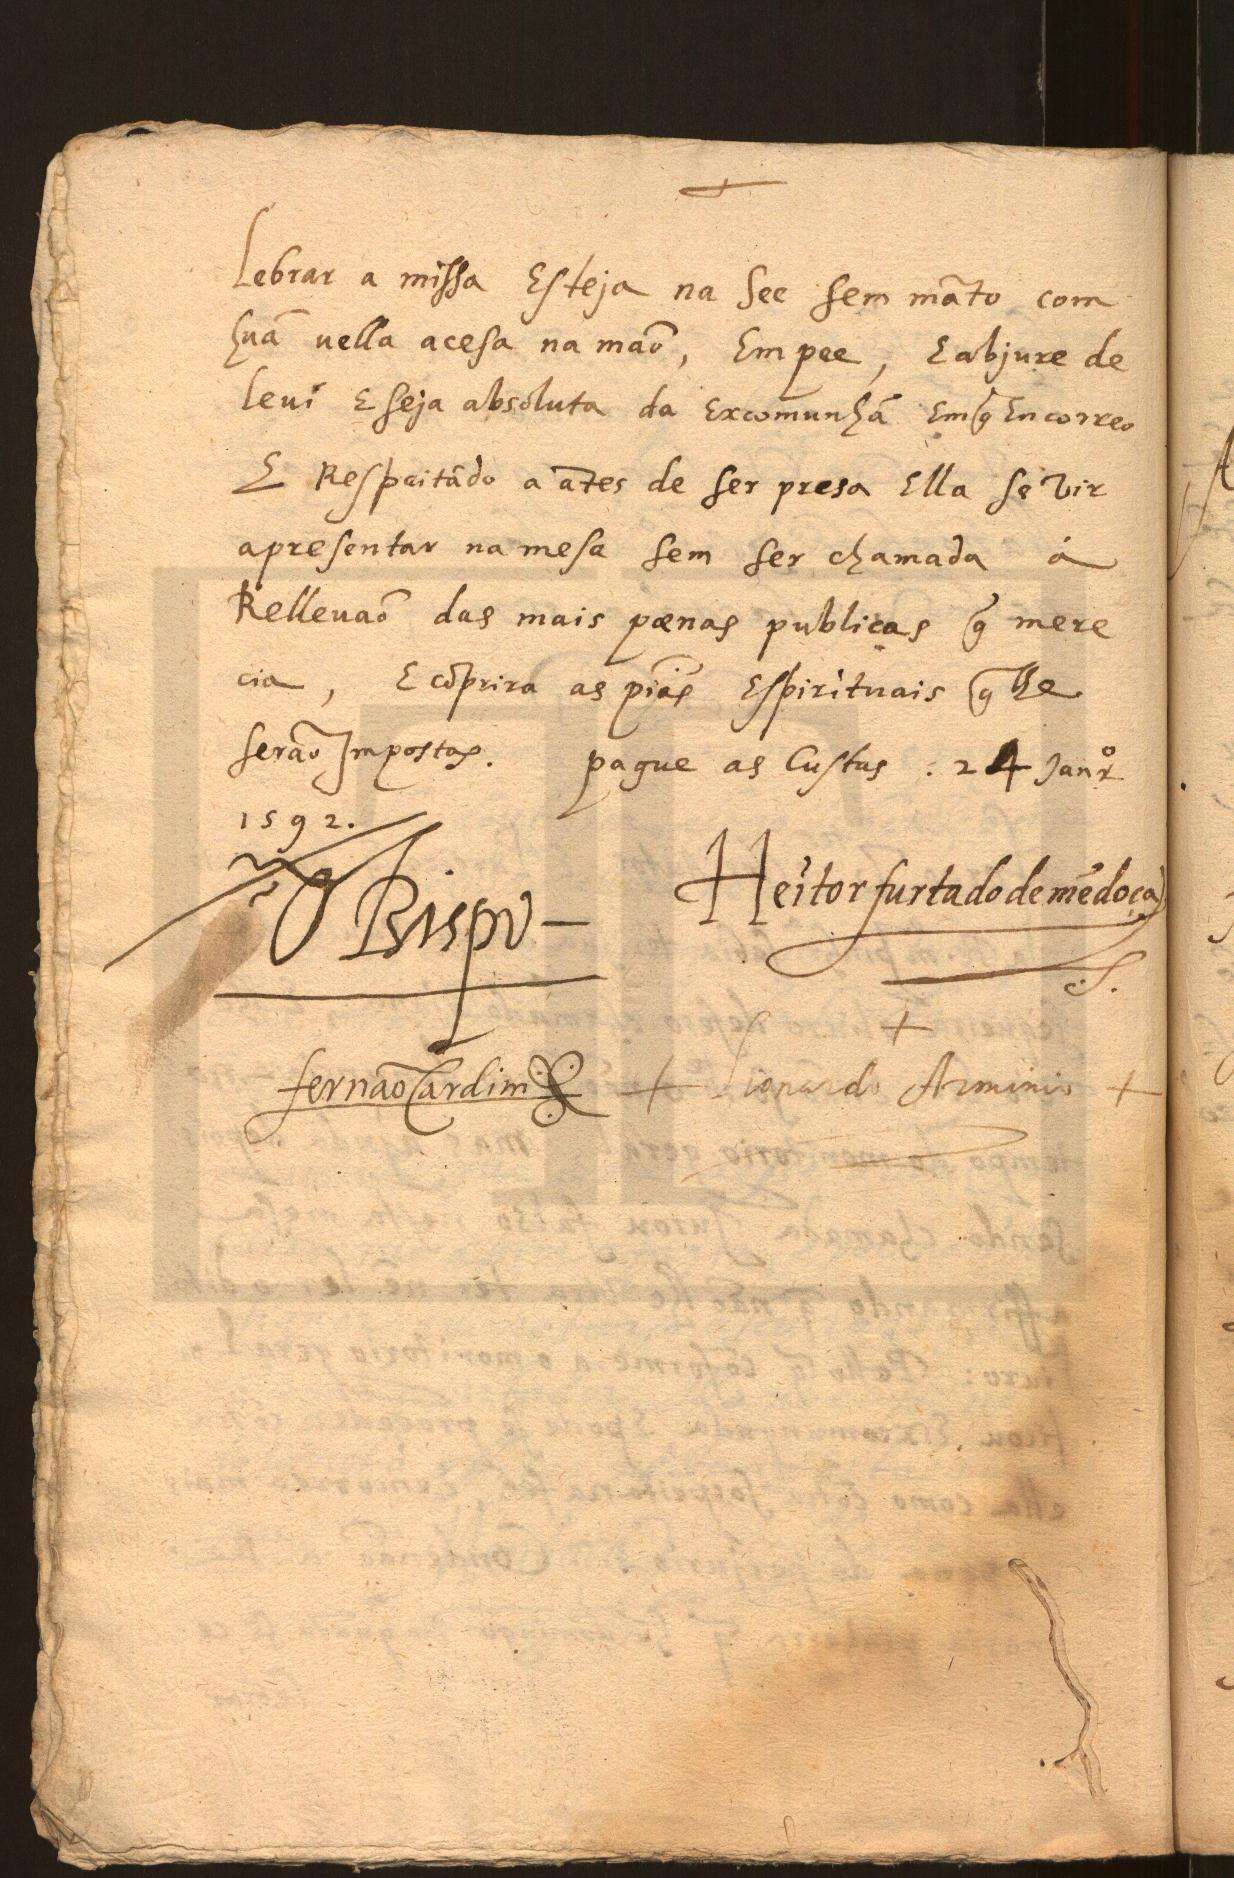 lebrar a missa Esteja na See sem mãto com
hũa vella acesa na maõ, Em pee, E abjure de
levi E seja absoluta da Excomunhã Em q̃ Encorreo
E Respeitãdo a ãtes de ser presa Ella se vir
apresentar na mesa sem ser chamada a
Rellevaõ das mais pœnas publicas q̃ mere
cia, E cõprira as p̃ias Espirituais q̃ lhe
seraõ Impostas. pague as Custas . 24 Janr.º
1592.
O Bispo
Heitor furtado de mẽdoça
fernaõ Cardim
+
+ Lionardo Arminio +